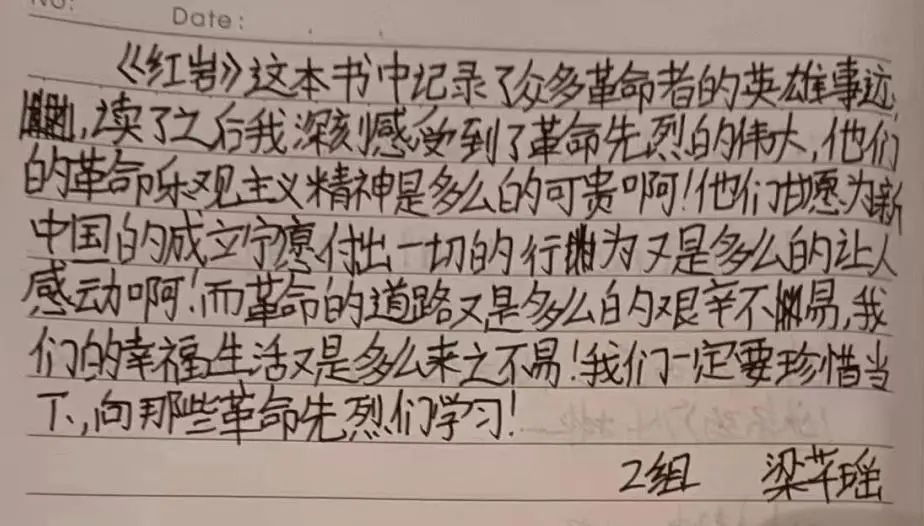 No: Date:
《红岩》这本书中记录了众多革命者的英雄事迹
，读了之后我深刻感受到了革命先烈的伟大，他们
的革命乐观主义精神是多么的可贵啊！他们甘愿为新
中国的成立宁愿付出一切的行为又是多么的让人
感动啊！而革命的道路又是多么的艰辛不易，我
们的幸福生活又是多么来之不易！我们一定要珍惜当
下，向那些革命先烈们学习！
2组 梁芊瑶